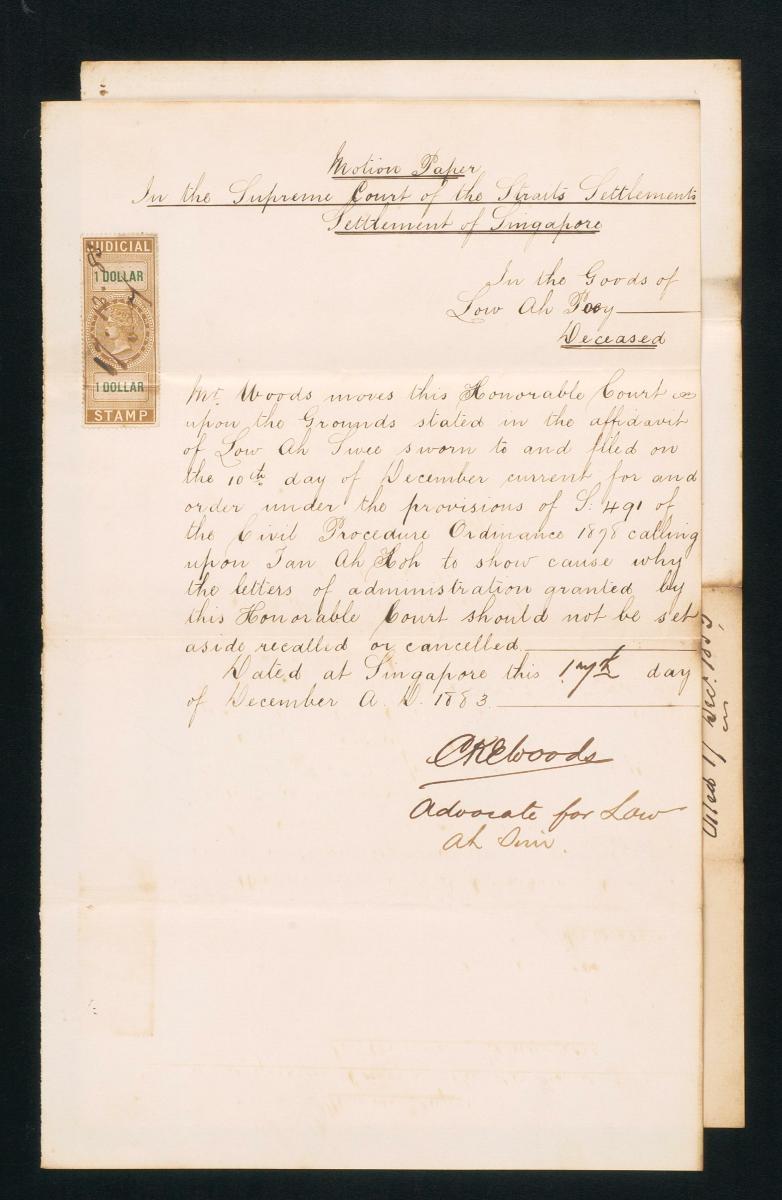 Motion Paper
In the Supreme Court of the Straits Settlements
Settlement of Singapore
JUDICIAL
1 DOLLAR
17.12.83
1 DOLLAR
STAMP
In the Goods of
Low Ah Pooy
Deceased
Mr. Woods moves this Honorable Court
upon the Grounds stated in the affidavit
of Low Ah Swee sworn to and filed on
the 10th day of December current for and
order under the provisions of S: 491 of
the Civil Procedure Ordinance 1878 calling
upon Tan Ah Hoh to show cause why
the letters of administration granted by
this Honorable Court should not be set
aside recalled or cancelled
Dated at Singapore this 17th day
of December A. D. 1883
CREWoods
Advocate for Low
Ah
Filed 17 Dec. 1883